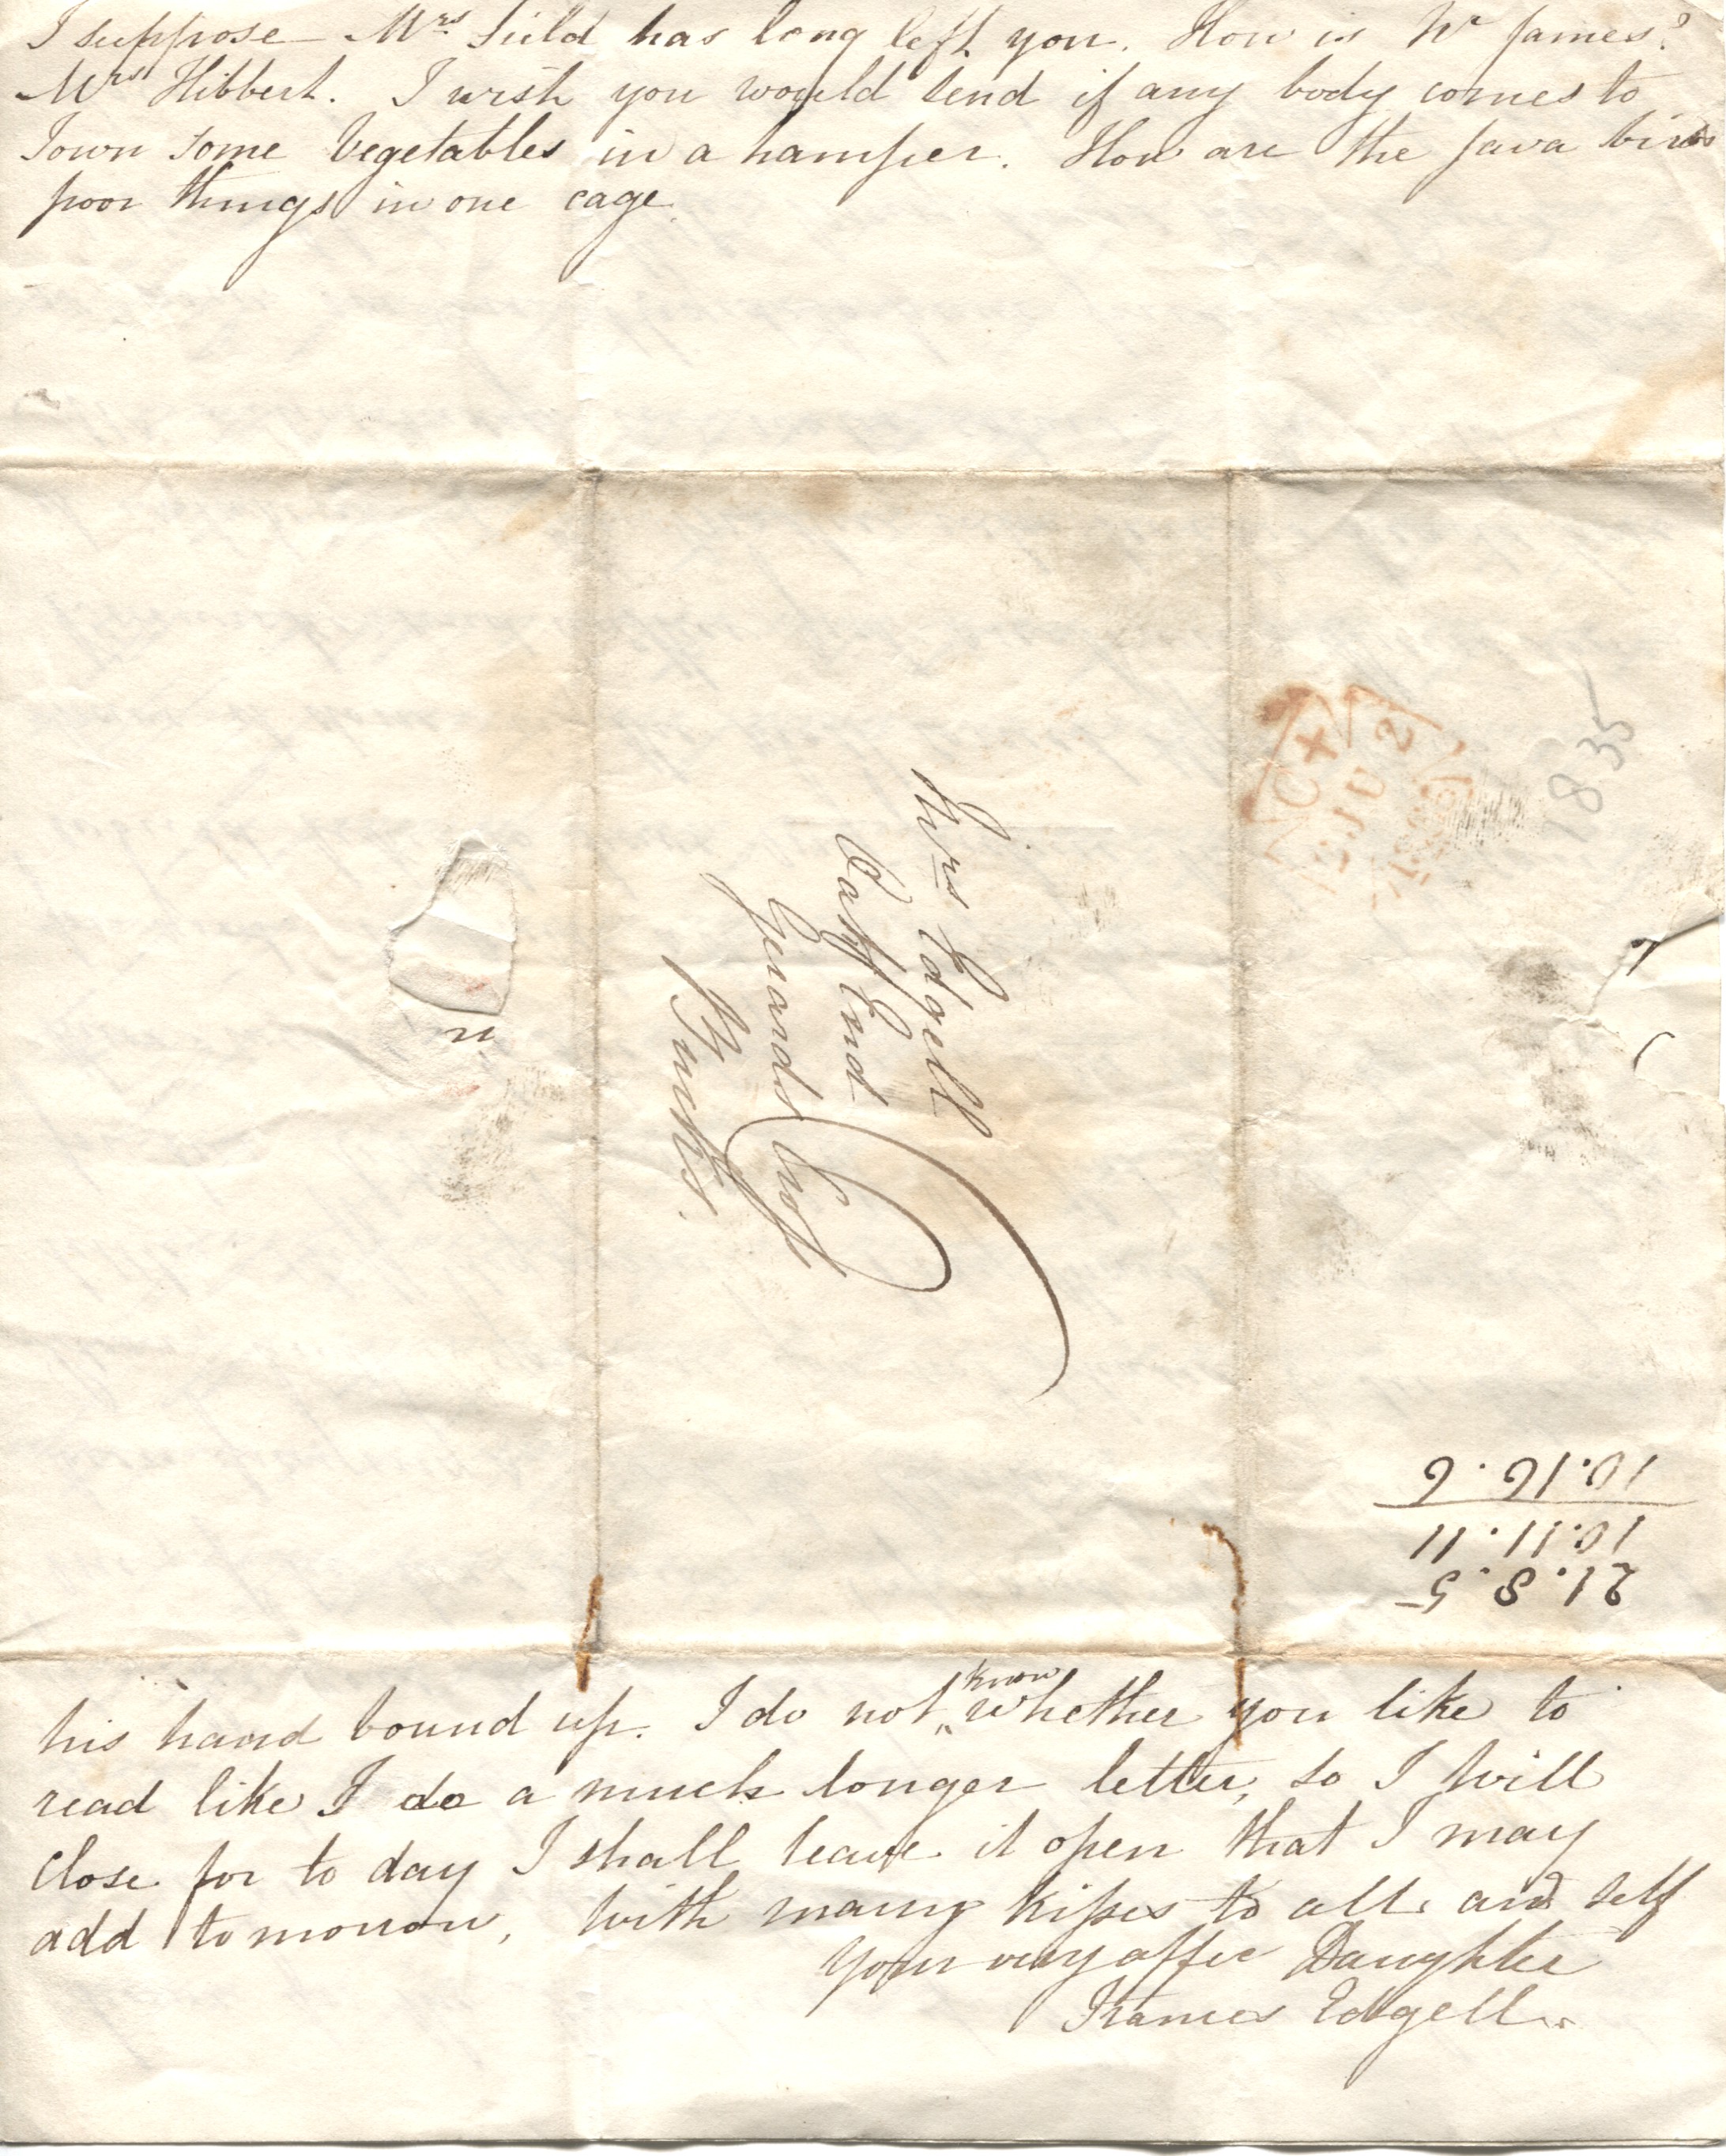 I suppose Mrs Field has long left you. How is Wm James?
Mrs Hibbert. I wish you would send if any body comes to
Town some Vegetables in a hamper. How are the Java birds
poor things in one cage.
1835
Mrs Edgell
Oak End
Gerards Cross
Bucks.
10.16.6
10.11.11
21.8.5
his hand bound up. I do not know whether you like to
read like I do a much longer letter, so I will
close for to day I shall leave it open that I may
add tomorrow, with many kisses to all and self
Your very affec Daughter
Frances Edgell